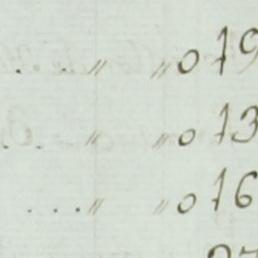 .. .. " " 0 19
.. . " " 0 13
.... " " 0 16